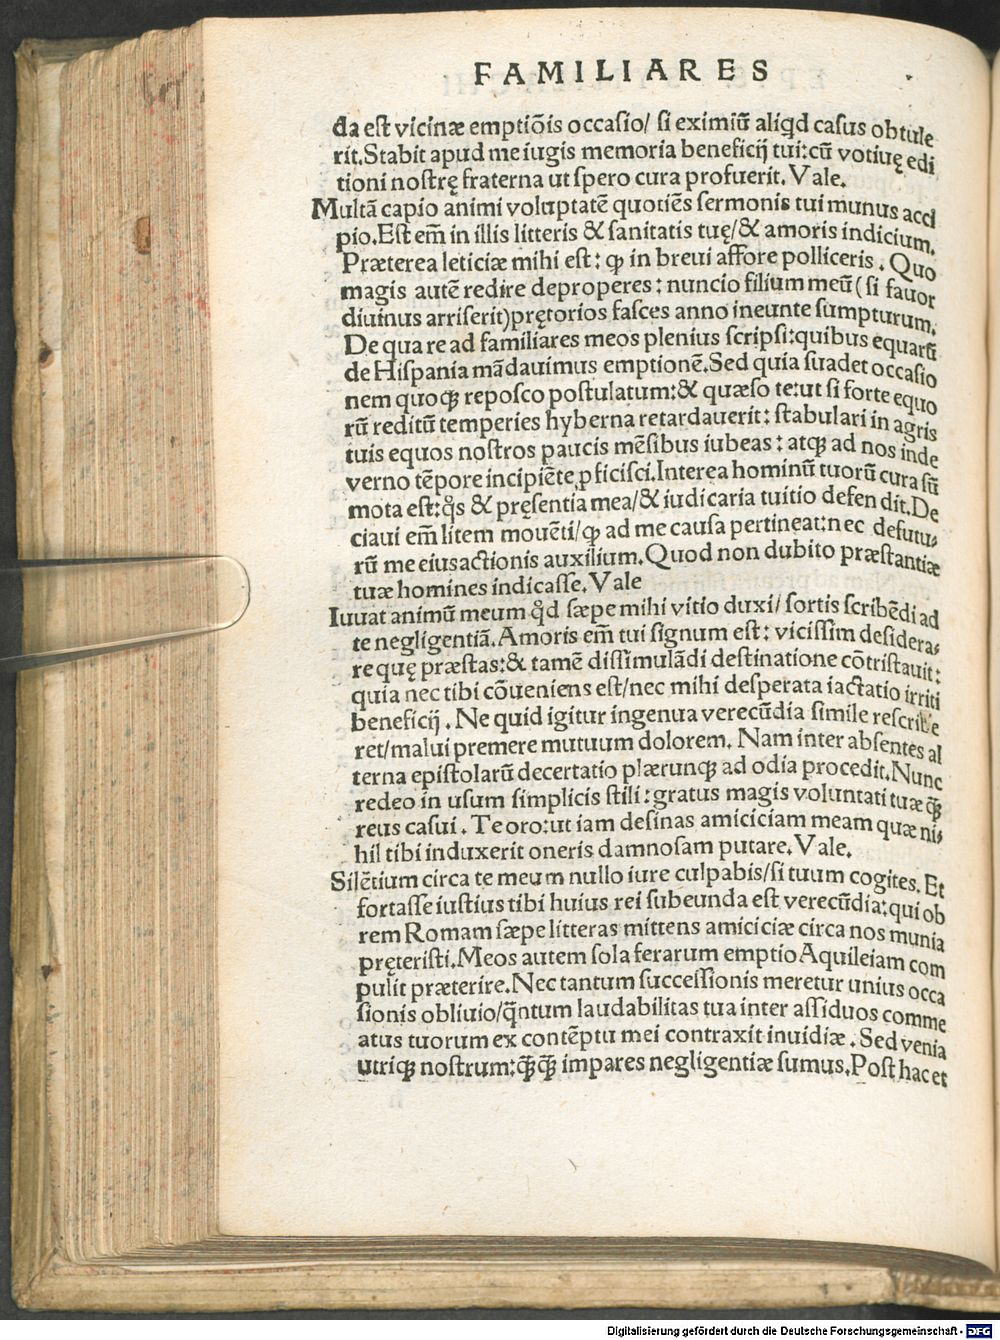 FAMILIARES
da est vicinæ emptiõis occasio/ si eximiũ aliqd casus obtule
rit.Stabit apud me iugis memoria beneficij tui:cũ votiuę edi
tioni nostrę fraterna ut spero cura profuerit.Vale.
Multã capio animi voluptatẽ quotiẽs sermonis tui munus acci
pio.Est em̃ in illis litteris & sanitatis tuę/& amoris indicium.
Præterea leticiæ mihi est: ꝙ in breui affore polliceris . Quo
magis autẽ redire deproperes: nuncio filium meũ(si fauor
diuinus arriserit)prętorios fasces anno ineunte sumpturum.
De qua re ad familiares meos plenius scripsi:quibus equarũ
de Hispania mãdauimus emptionẽ.Sed quia suadet occasio
nem quoqꝫ reposco postulatum:& quæso te:ut si forte equo
rũ reditũ temperies hyberna retardauerit: stabulari in agris
tuis equos nostros paucis mẽsibus iubeas: atqꝫ ad nos inde
verno tẽpore incipiẽte ꝓficisci.Interea hominũ tuorũ cura sũ
mota est:q̃s & pręsentia mea/& iudicaria tuitio defendit.De
ciaui em̃ litem mouẽti/ꝙ ad me causa pertineat:nec defutu,
rũ me eius actionis auxilium.Quod non dubito præstantiæ
tuæ homines indicasse.Vale
Iuuat animũ meum q̃d sæpe mihi vitio duxi/ sortis scribẽdi ad
te negligentiã.Amoris em̃ tui signum est: vicissim desidera,
re quę præstas:& tamẽ dissimulãdi destinatione cõtristauit:
quia nec tibi cõueniens est/nec mihi desperata iactatio irriti
beneficij . Ne quid igitur ingenua verecũdia simile rescribe
ret/malui premere mutuum dolorem. Nam inter absentes al
terna epistolarũ decertatio plærunqꝫ ad odia procedit.Nunc
redeo in usum simplicis stili:gratus magis voluntati tuæ q̃ꝫ
reus casui . Te oro:ut iam desinas amiciciam meam quæ ni,
hil tibi induxerit oneris damnosam putare.Vale.
Silẽtium circa te meum nullo iure culpabis/si tuum cogites. Et
fortasse iustius tibi huius rei subeunda est verecũdia:qui ob
rem Romam sæpe litteras mittens amiciciæ circa nos munia
pręteristi.Meos autem sola ferarum emptio Aquileiam com
pulit præterire.Nec tantum successionis meretur unius occa
sionis obliuio/q̃ntum laudabilitas tua inter assiduos comme
atus tuorum ex contẽptu mei contraxit inuidiæ . Sed venia
utriqꝫ nostrum:q̃ꝫq̃ꝫ impares negligentiæ sumus.Post hac et
Digitalisierung gefördert durch die Deutsche Forschungsgemeinschaft - DFG